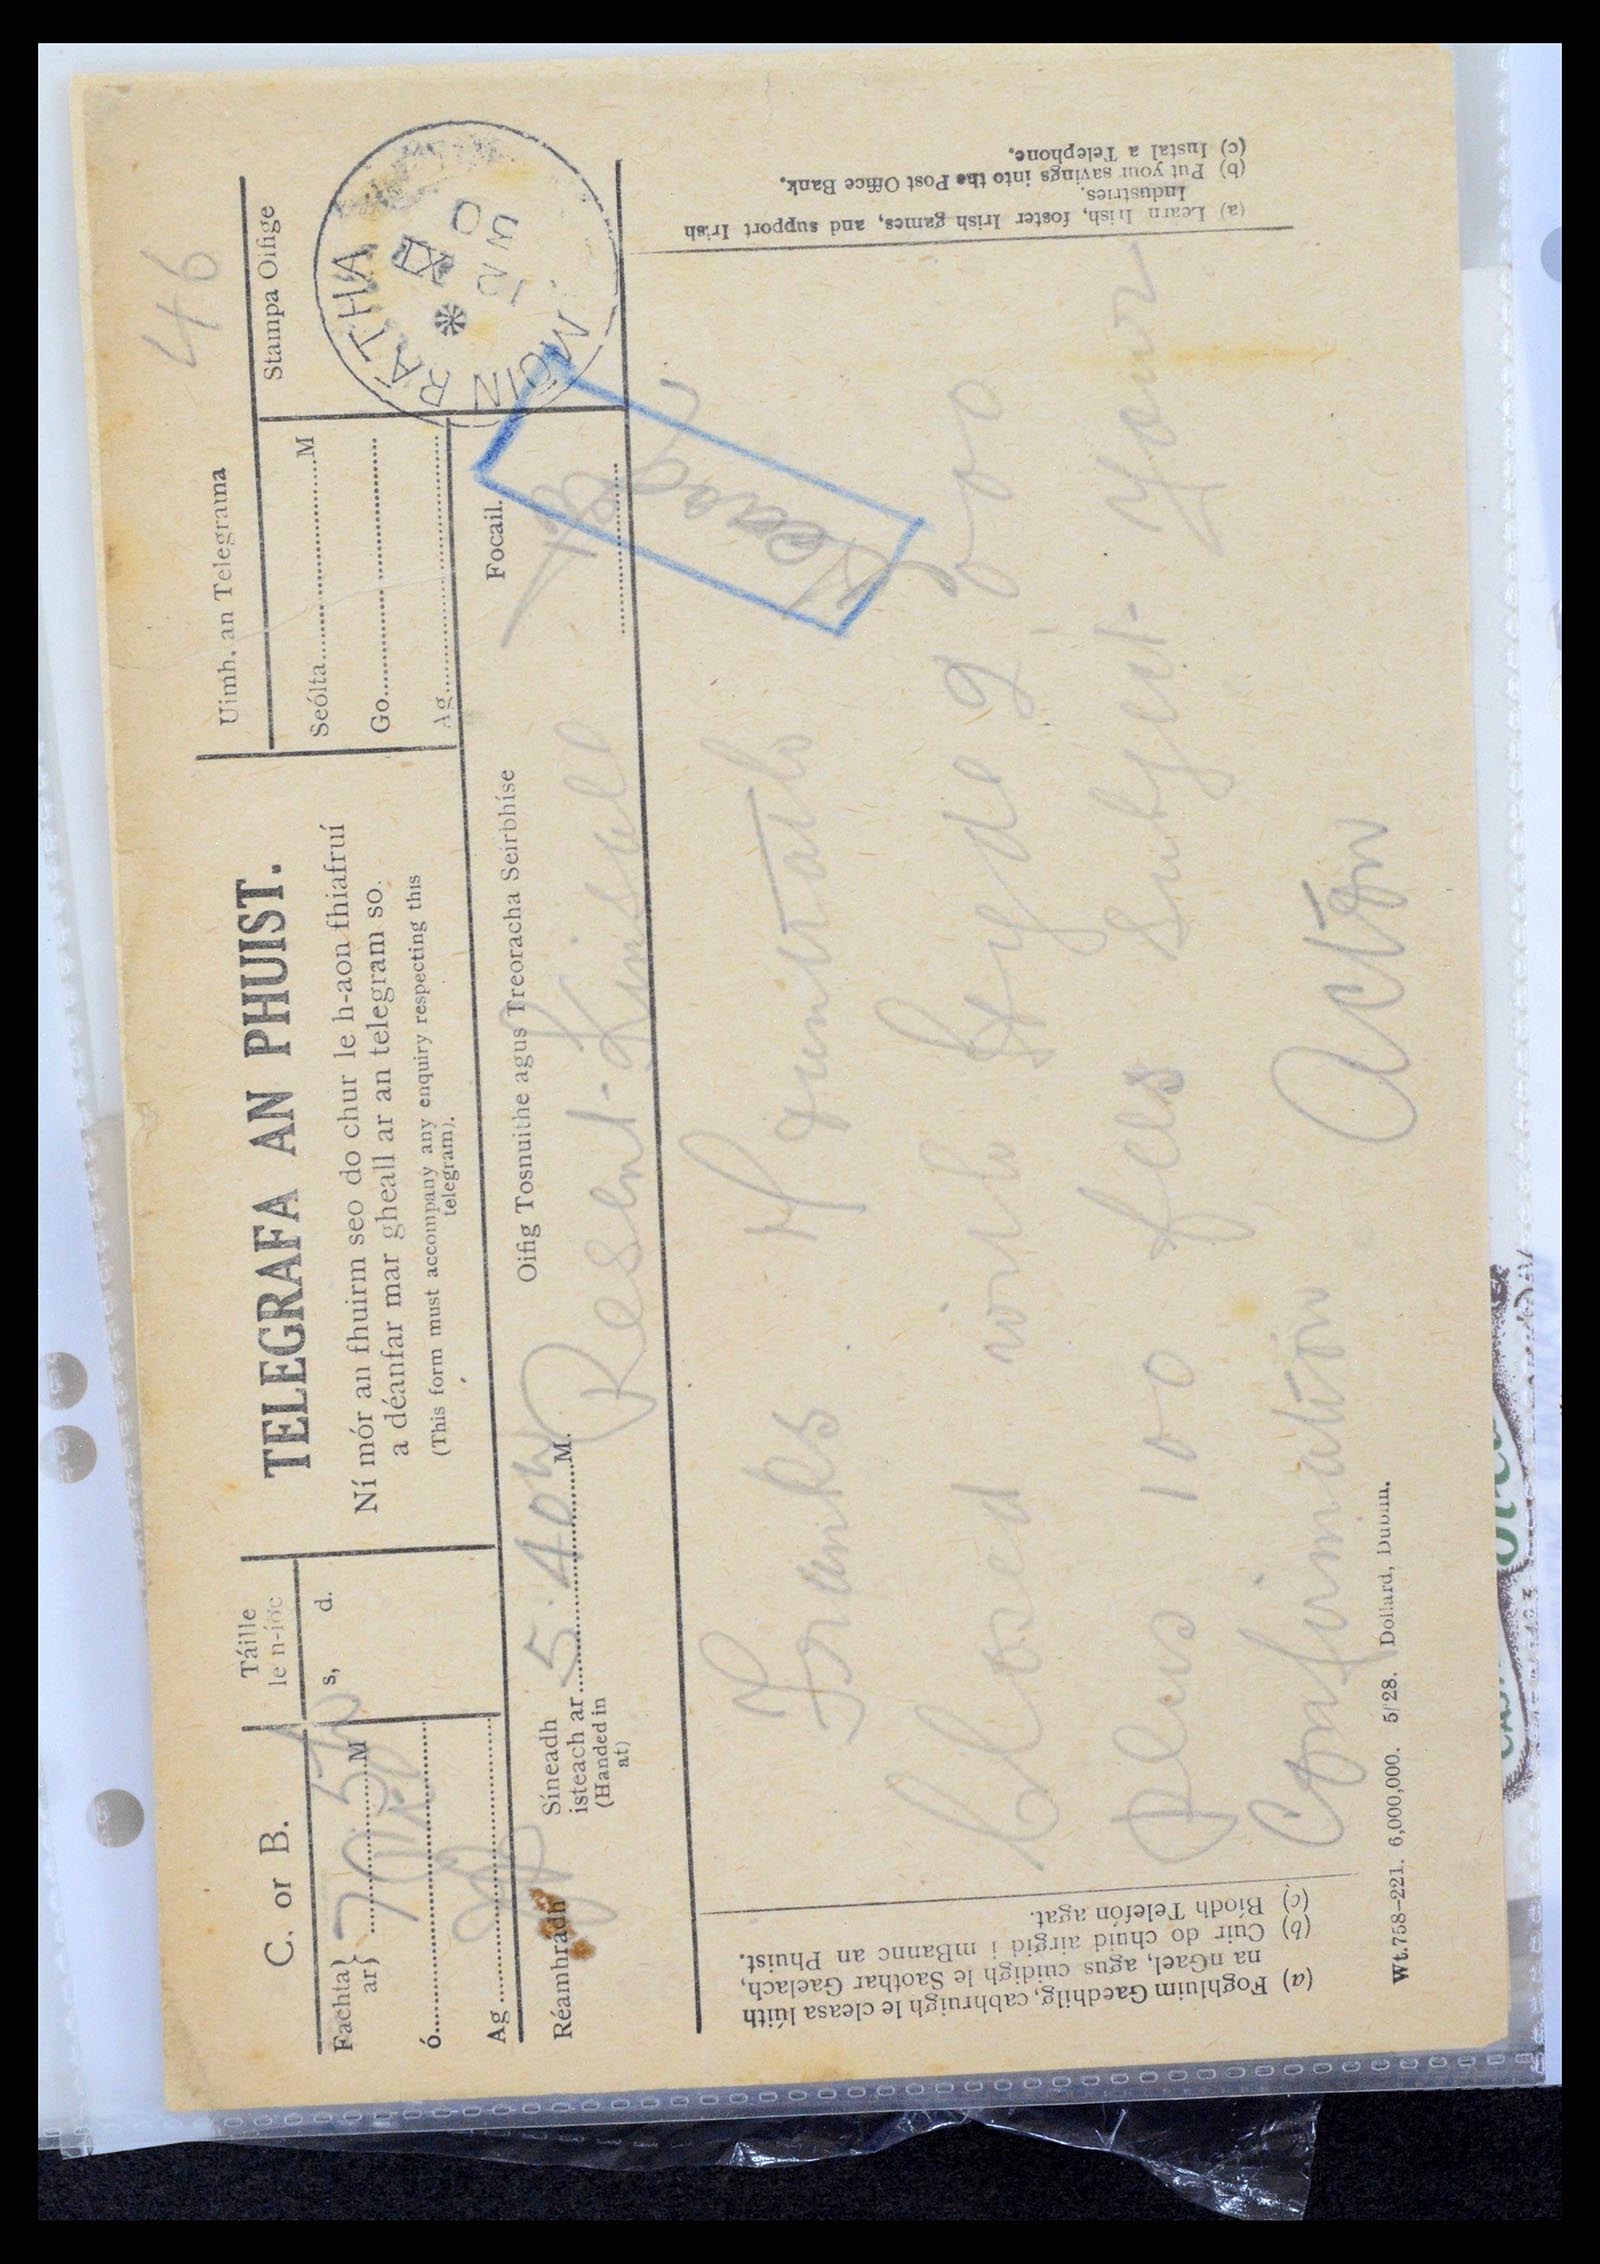 46
C. or B.
Táille
le n-íoc
s, d.
TELEGRAFA AN PHUIST.
Uimh. an Telegrama
Stampa Oifige
Fachta ar} 5 M
ó
Ag
Ní mór an fhuirm seo do chur le h-aon fhiafruí
a déanfar mar gheall ar an telegram so.
(This form must accompany any enquiry respecting this
telegram).
Seólta M
Go
Ag
RATHA
Réamhradh
Síneadh
isteach ar
(Handed in
at)
5.40 M.
Oifig Tosnuithe agus Treoracha Seirbhíse
Focail.
Resent Kinsale
Franks
Closed with Hyde 9 600
plus 100 fees subject your
Confirmation Acton
(a) Foghluim Gaedhilg, cabhruigh le cleasa lúith
na nGael, agus cuidigh le Saothar Gaelach,
(b) Cuir do chuid airgid i mBannc an Phuist.
(c) Bíodh Telefón agat.
(a) Learn Irish, foster Irish games, and support Irish
Industries.
(b) Put your savings into the Post Office Bank.
(c) Instal a Telephone.
Wt.758–221. 6,000,000. 5/28. Dollard, Dublin.